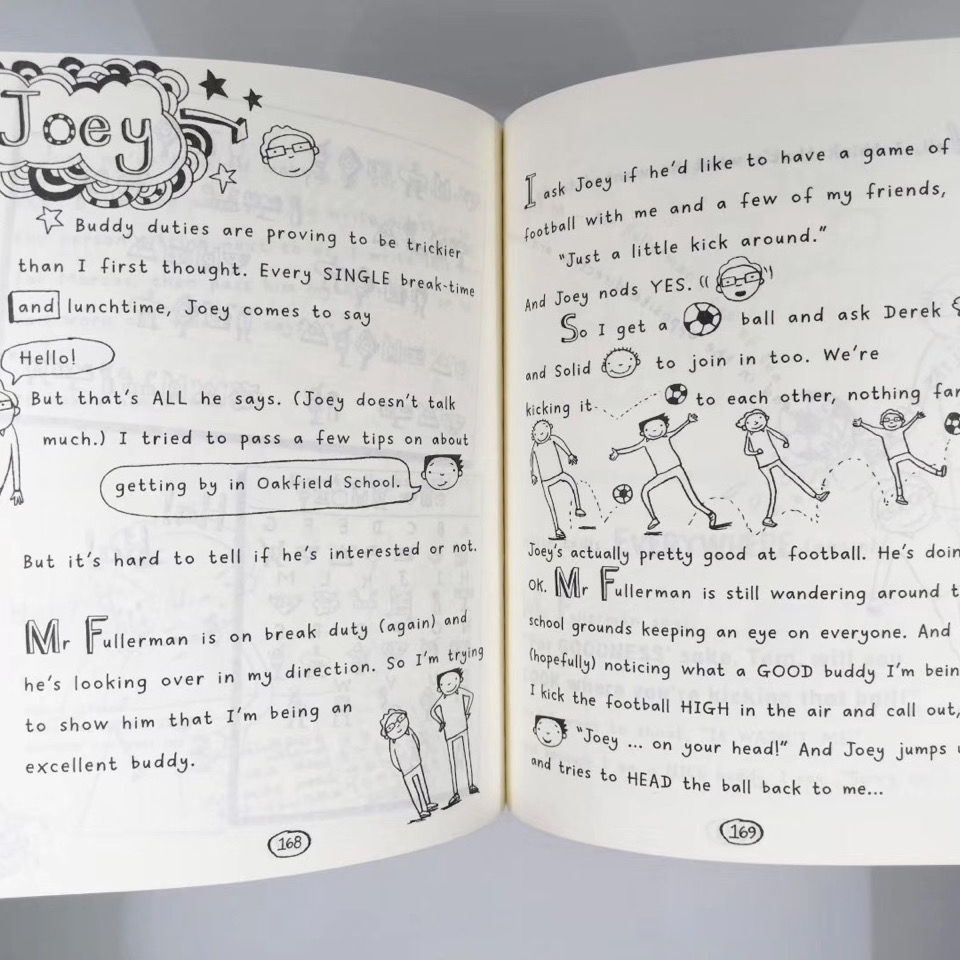 Joey
Buddy duties are proving to be trickier
than I first thought. Every SINGLE break-time
and lunchtime, Joey comes to say
Hello!
But that's ALL he says. (Joey doesn't talk
much.) I tried to pass a few tips on about
getting by in Oakfield School.
But it's hard to tell if he's interested or not.
Mr Fullerman is on break duty (again) and
he's looking over in my direction. So I'm trying
to show him that I'm being an
excellent buddy.
168
I ask Joey if he'd like to have a game of
football with me and a few of my friends,
"Just a little kick around."
And Joey nods YES.
So I get a ball and ask Derek
and Solid to join in too. We're
kicking it to each other, nothing
Joey's actually pretty good at football. He's
OK. Mr Fullerman is still wandering around
school grounds keeping an eye on everyone. And
(hopefully) noticing what a GOOD buddy I'm
I kick the football HIGH in the air and call out,
"Joey ... on your head!" And Joey jumps
and tries to HEAD the ball back to me...
169